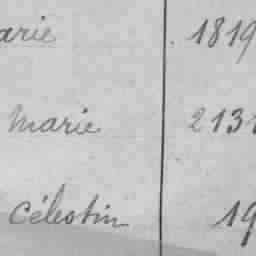 arie 1819
Marie 2131
Célestin 19